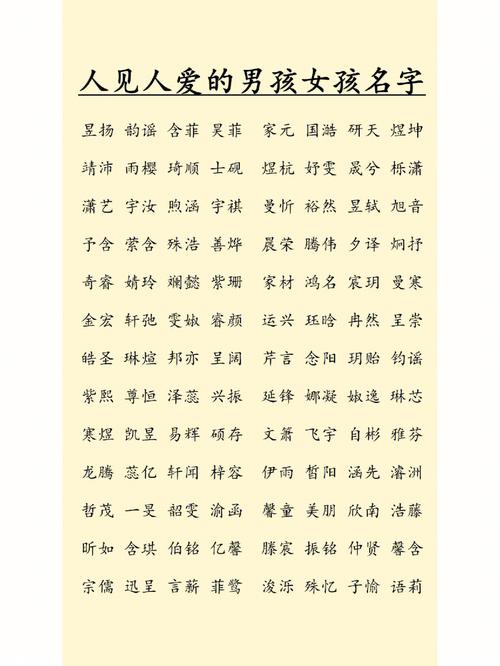 人见人爱的男孩女孩名字
昱扬 韵谣 含菲 昊菲 家元 国浩 研天 煜坤
靖沛 雨樱 琦顺 士砚 煜杭 妤雯 晟兮 栎潇
潇艺 宇汝 煦涵 宇祺 曼忻 裕然 昱轼 旭音
予含 萦含 殊浩 善烨 晨荣 腾伟 夕译 炯抒
奇睿 婧玲 斓懿 紫珊 家材 鸿名 宸玥 曼寒
金宏 轩弛 雯婌 睿颜 运兴 珏晗 冉然 呈崇
皓圣 琳煊 邦亦 呈阔 芹言 念阳 玥贻 钧谣
紫熙 尊恒 泽蕊 兴振 延锋 娜凝 婌逸 琳芯
寒煜 凯昱 易辉 硕存 文箫 飞宇 自彬 雅芬
龙腾 蕊亿 轩闻 梓容 伊雨 皙阳 涵先 濬洲
哲茂 一旻 韶雯 渝函 馨童 美朋 欣南 浩藤
昕如 含琪 伯铭 亿馨 滕宸 振铭 仲贤 馨含
宗儒 迅呈 言蕲 菲鹭 浚泺 殊忆 子愉 语莉